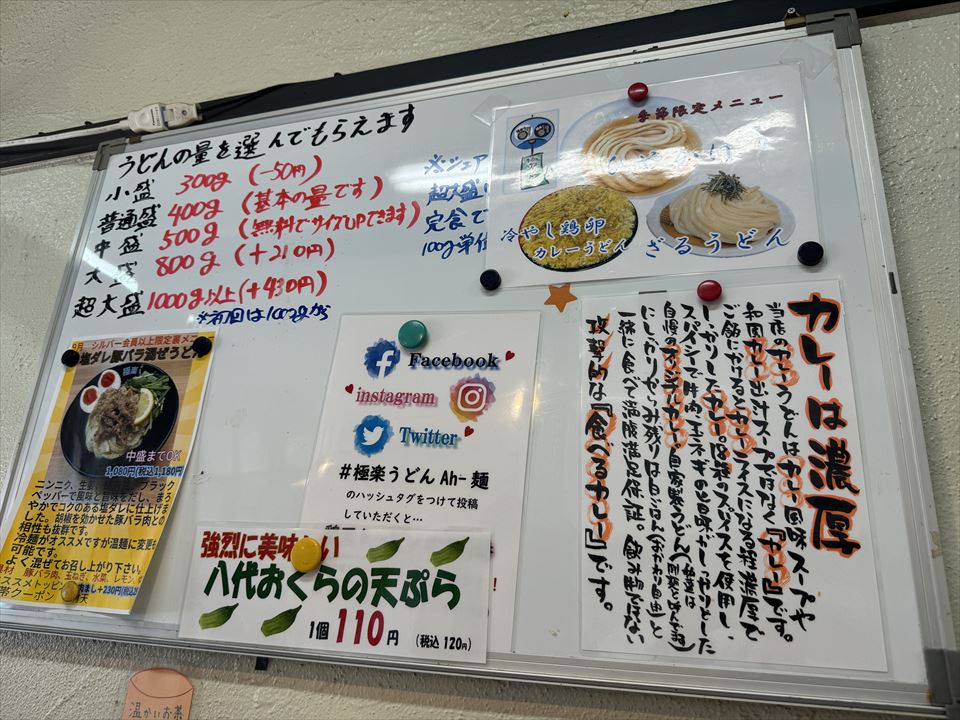 うどんの量を選んでもらえます
小盛 300g (-50円)
普通盛 400g (基本の量です)
中盛 500g (無料でサイズUPできます)
大盛 800g (+210円)
超大盛 1000g以上(+430円)
※初回は1000gから
※シェア
超大盛
定食で
100g単位
季節限定メニュー
冷やし鶏卵
カレーうどん
ざるうどん
9月 シルバー会員以上限定裏メニュー
塩ダレ豚バラ混ぜうどん
中盛までOK
1,080円(税込1,180円
ニンニク、生姜、ブラック
ペッパーで風味と旨味をだし、まろ
やかでコクのある塩ダレに仕上げま
した。胡椒を効かせた豚バラ肉との
相性も抜群です。
冷麺がオススメですが温麺に変更も
可能です。
よく混ぜてお召し上がり下さい。
具材 豚バラ肉、玉ねぎ、水菜、レモン、
ススメトッピン
肉まし+230円(税込
帯クーポン
Facebook
instagram
Twitter
#極楽うどん Ah-麺
のハッシュタグをつけて投稿
していただくと…
強烈に美味しい
八代おくらの天ぷら
1個 110円 (税込 120円)
カレーは濃厚
当店のカレーうどんはカレー風味スープや
和風カレー出汁スープではなく『カレー』です。
ご飯にかけるとカレーライスになる程濃厚で
しっかりしたカレー。18種のスパイスを使用し、
スパイシーで牛肉、玉ネギの旨味がしっかりとした
自慢のオリジナルカレー。自家製うどん
にしっかりぜっみ残りは白ごはん(おかわり自由)と
一緒に食べて満腹満足保証。飲み物ではない
攻撃的な『食べるカレー』です。
温かいお茶